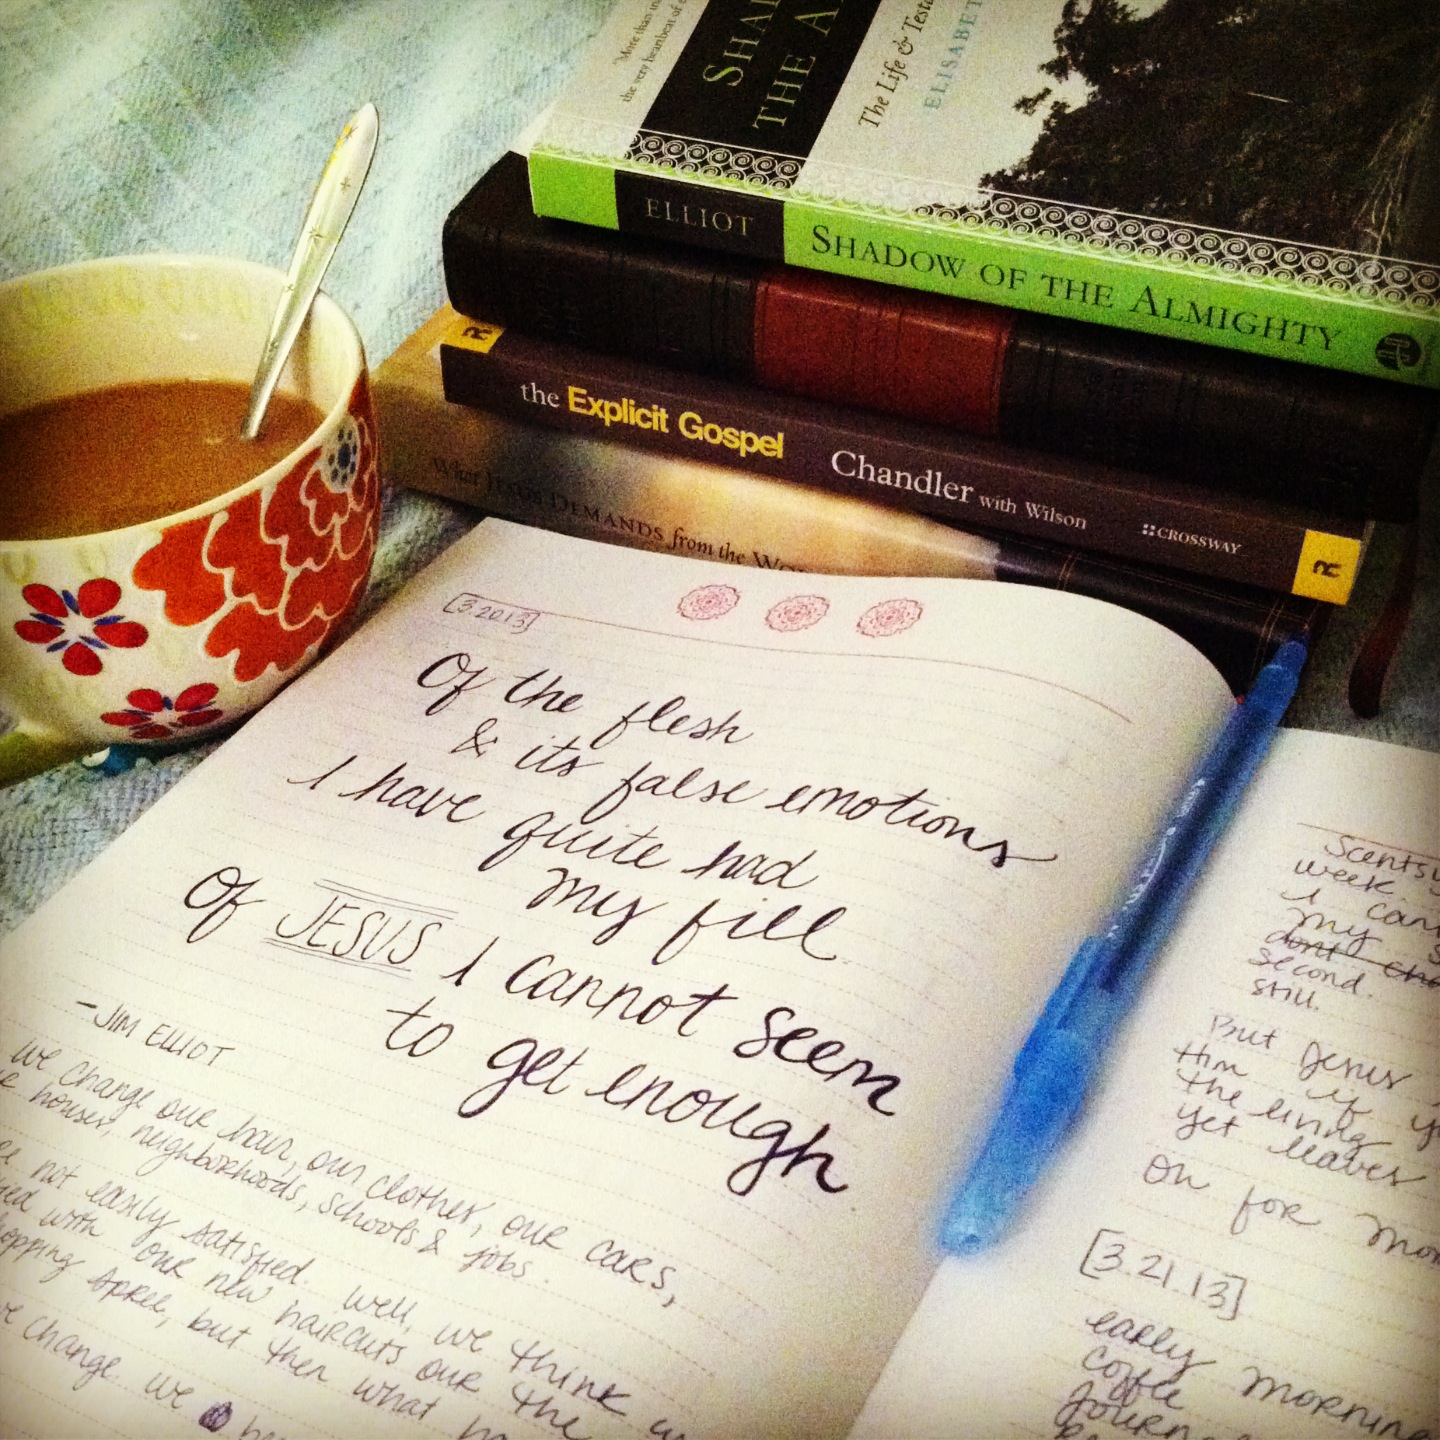 "More than in
the very heartbeat of
SHAD
THE A
The Life & Testa
ELISABET
ELLIOT SHADOW OF THE ALMIGHTY
R the Explicit Gospel Chandler with Wilson ::CROSSWAY R
What JESUS DEMANDS from the Wor
[3.20.13]
Of the flesh
& its false emotions
I have quite had
my fill.
Of JESUS I cannot seem
to get enough
-JIM ELLIOT
we change our hair, our clothes, our cars,
houses, neighborhoods, schools & jobs.
not easily satisfied. Well, we think
with our new haircuts our
shopping spree, but then what
change. we
Scentsy
week
I can
my
dont
second.
still.
But Jesus
Him if y
the living
yet leaves
on for mor
[3.21.13]
early morning
coffee
Journ